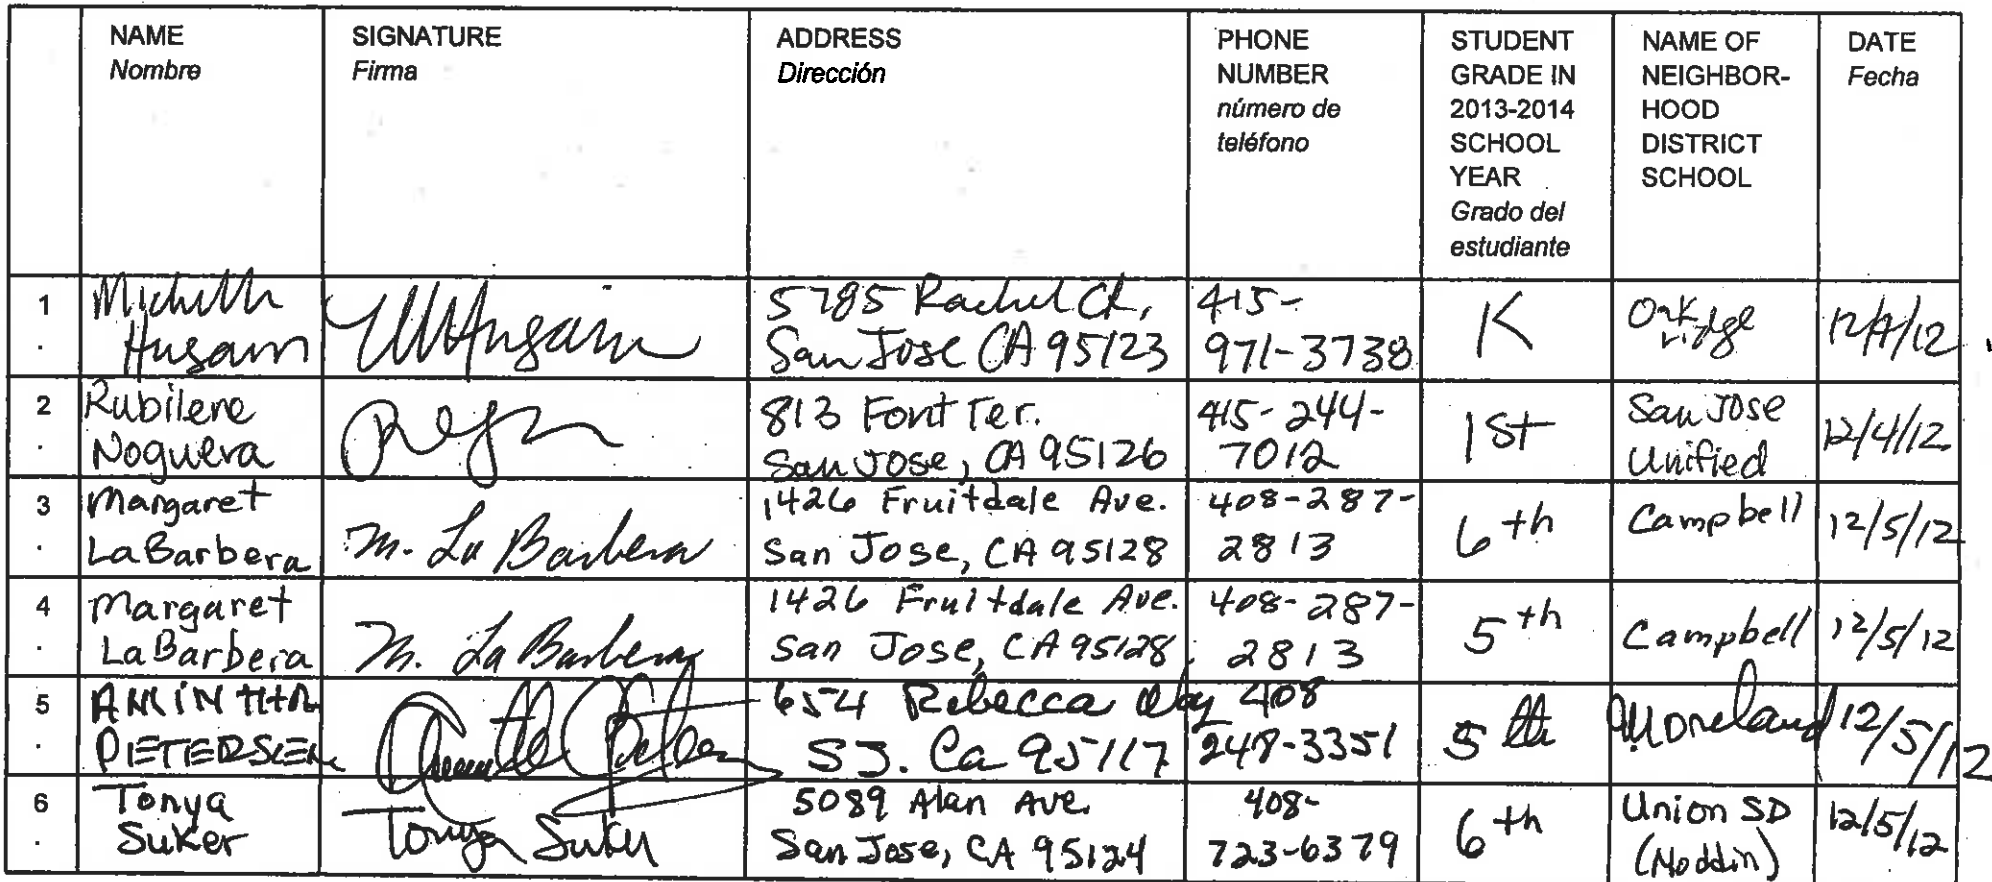 NAME
Nombre
SIGNATURE
Firma
ADDRESS
Dirección
PHONE
NUMBER
número de
teléfono
STUDENT
GRADE IN
2013-2014
SCHOOL
YEAR
Grado del
estudiante
NAME OF
NEIGHBOR-
HOOD
DISTRICT
SCHOOL
DATE
Fecha
1
.
Michelle
Husain
MHusain
5785 Rachel Ct,
San Jose CA 95123
415-
971-3738
K
Oak
ridge
12/4/12
2
.
Rubilene
Noguera
813 Font Ter.
San Jose, CA 95126
415-244-
7012
1st
San Jose
Unified
12/4/12
3
.
Margaret
LaBarbera
M. La Barbera
1426 Fruitdale Ave.
San Jose, CA 95128
408-287-
2813
6th
Campbell
12/5/12
4
.
Margaret
LaBarbera
M. La Barbera
1426 Fruitdale Ave.
San Jose, CA 95128
408-287-
2813
5th
Campbell
12/5/12
5
.
AMINTHA
PIETERSEN
654 Rebecca Way
SJ. Ca 95117
408
248-3351
5th
Moreland
12/5/12
6
.
Tonya
Suker
Tonya Suker
5089 Alan Ave.
San Jose, CA 95124
408-
723-6379
6th
Union SD
(Noddin)
12/5/12